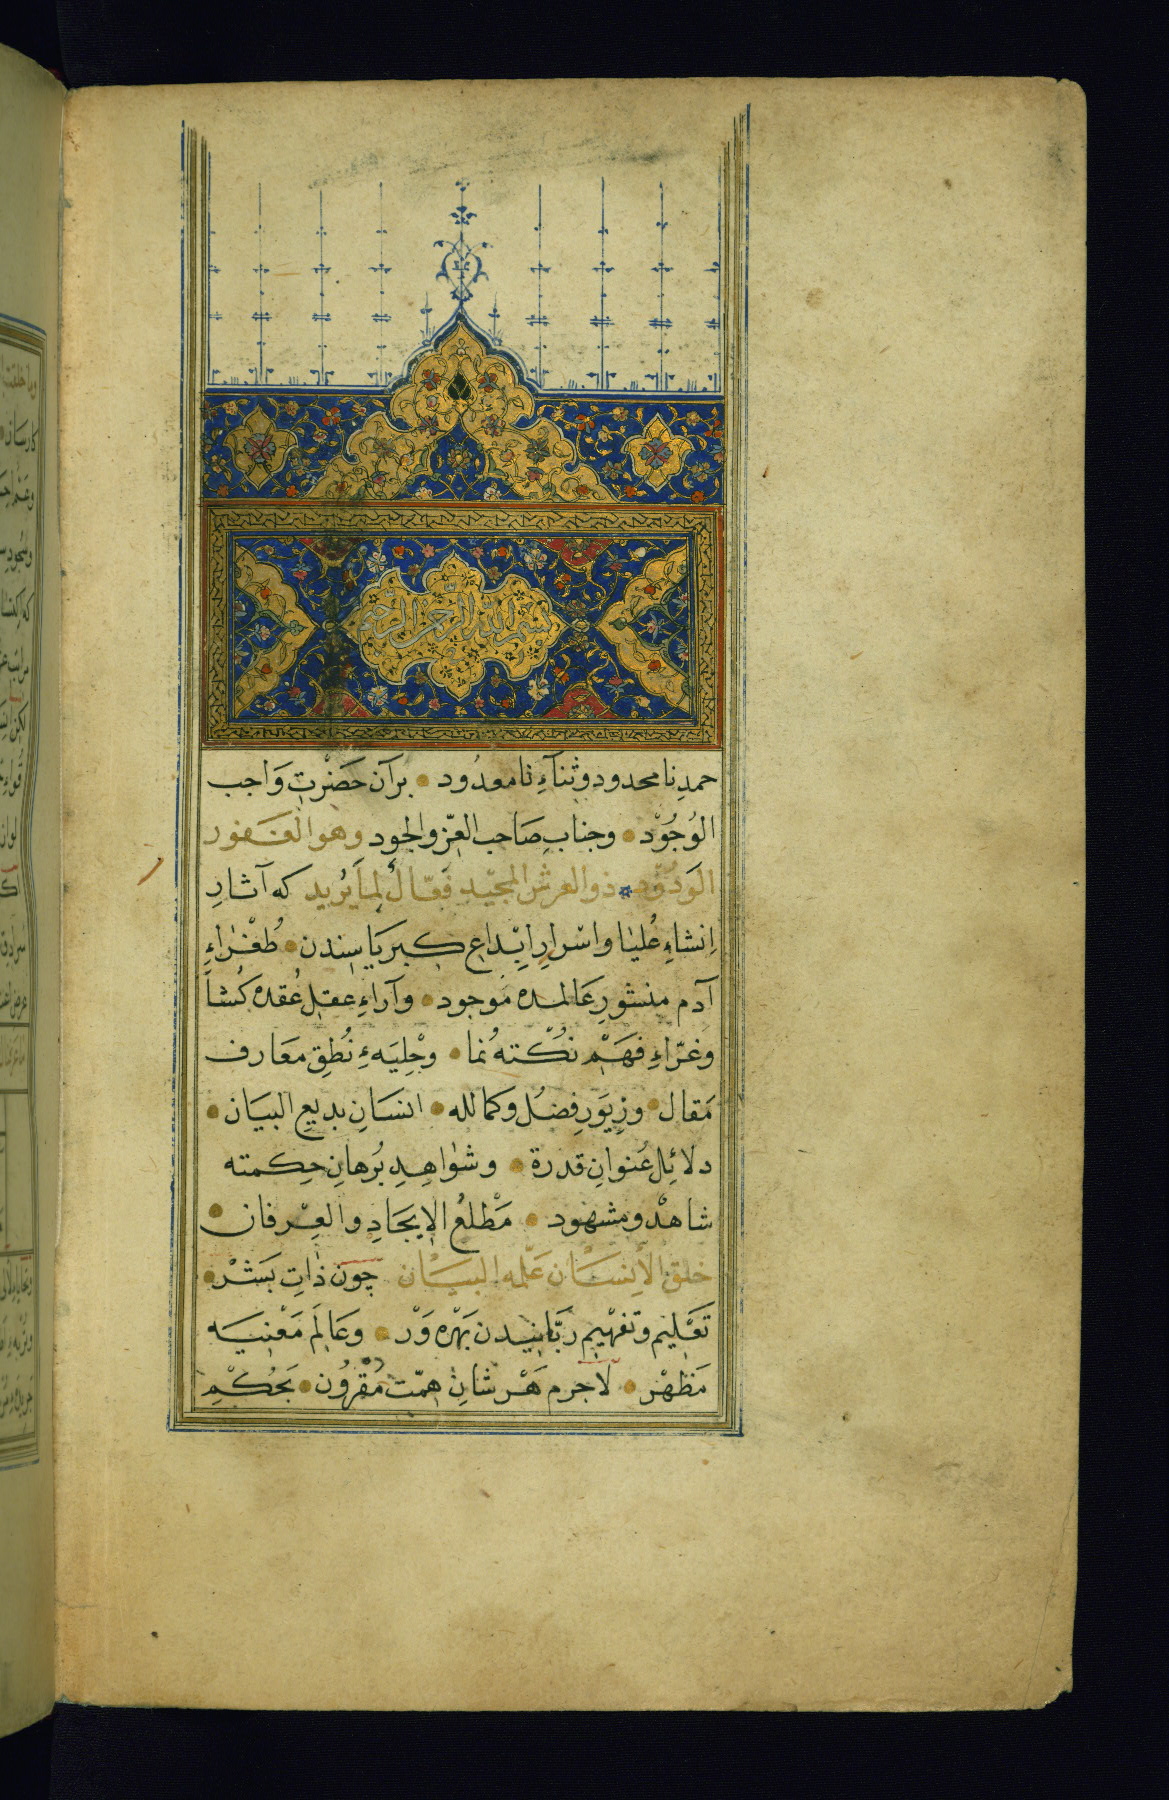 بسم الله الرحمن الرحيم
حمدِ نامحدود وثنآءِ نامعدُود برآن حَضْرتِ وَاجب
الوُجُوْد وجنابِ صَاحب العِزّ والجود وهو الغَفور
الوَدُوْد ذو العرشِ المجيْد فَعّالٌ لِمَا يُريد كه آثارِ
اِنشاءِ عُليٰا واسْرارِ اِبْداعِ كبريَا سندن طُغْراءِ
آدم منشورِ عَالمده مَوجود وآراءِ عقلِ عُقده كُشا
وغرّاءِ فهَمْ نُكْته نُما وحِلْيَهءِ نُطقِ مَعَارف
مَقال وزيوَرِ فضل وكمالله انسَانِ بديع البيَان
دلائِل عُنوانِ قدرة وشوٰاهِدِ بُرهانِ حِكمته
شاهدْ ومشهُود مَطْلعُ الإيجَادِ والعِرفان
خلق الاِنسْان عَلّمه البيَان چون ذٰاتِ بَشَرْ
تَعَليم وتَفهْيم رَبّانيدن بَهْره وَرْ وعَالَم مَعْنيَه
مَظْهرْ لاجرم هَرْ شانِ همّت مَقْرُون بحُكمِ